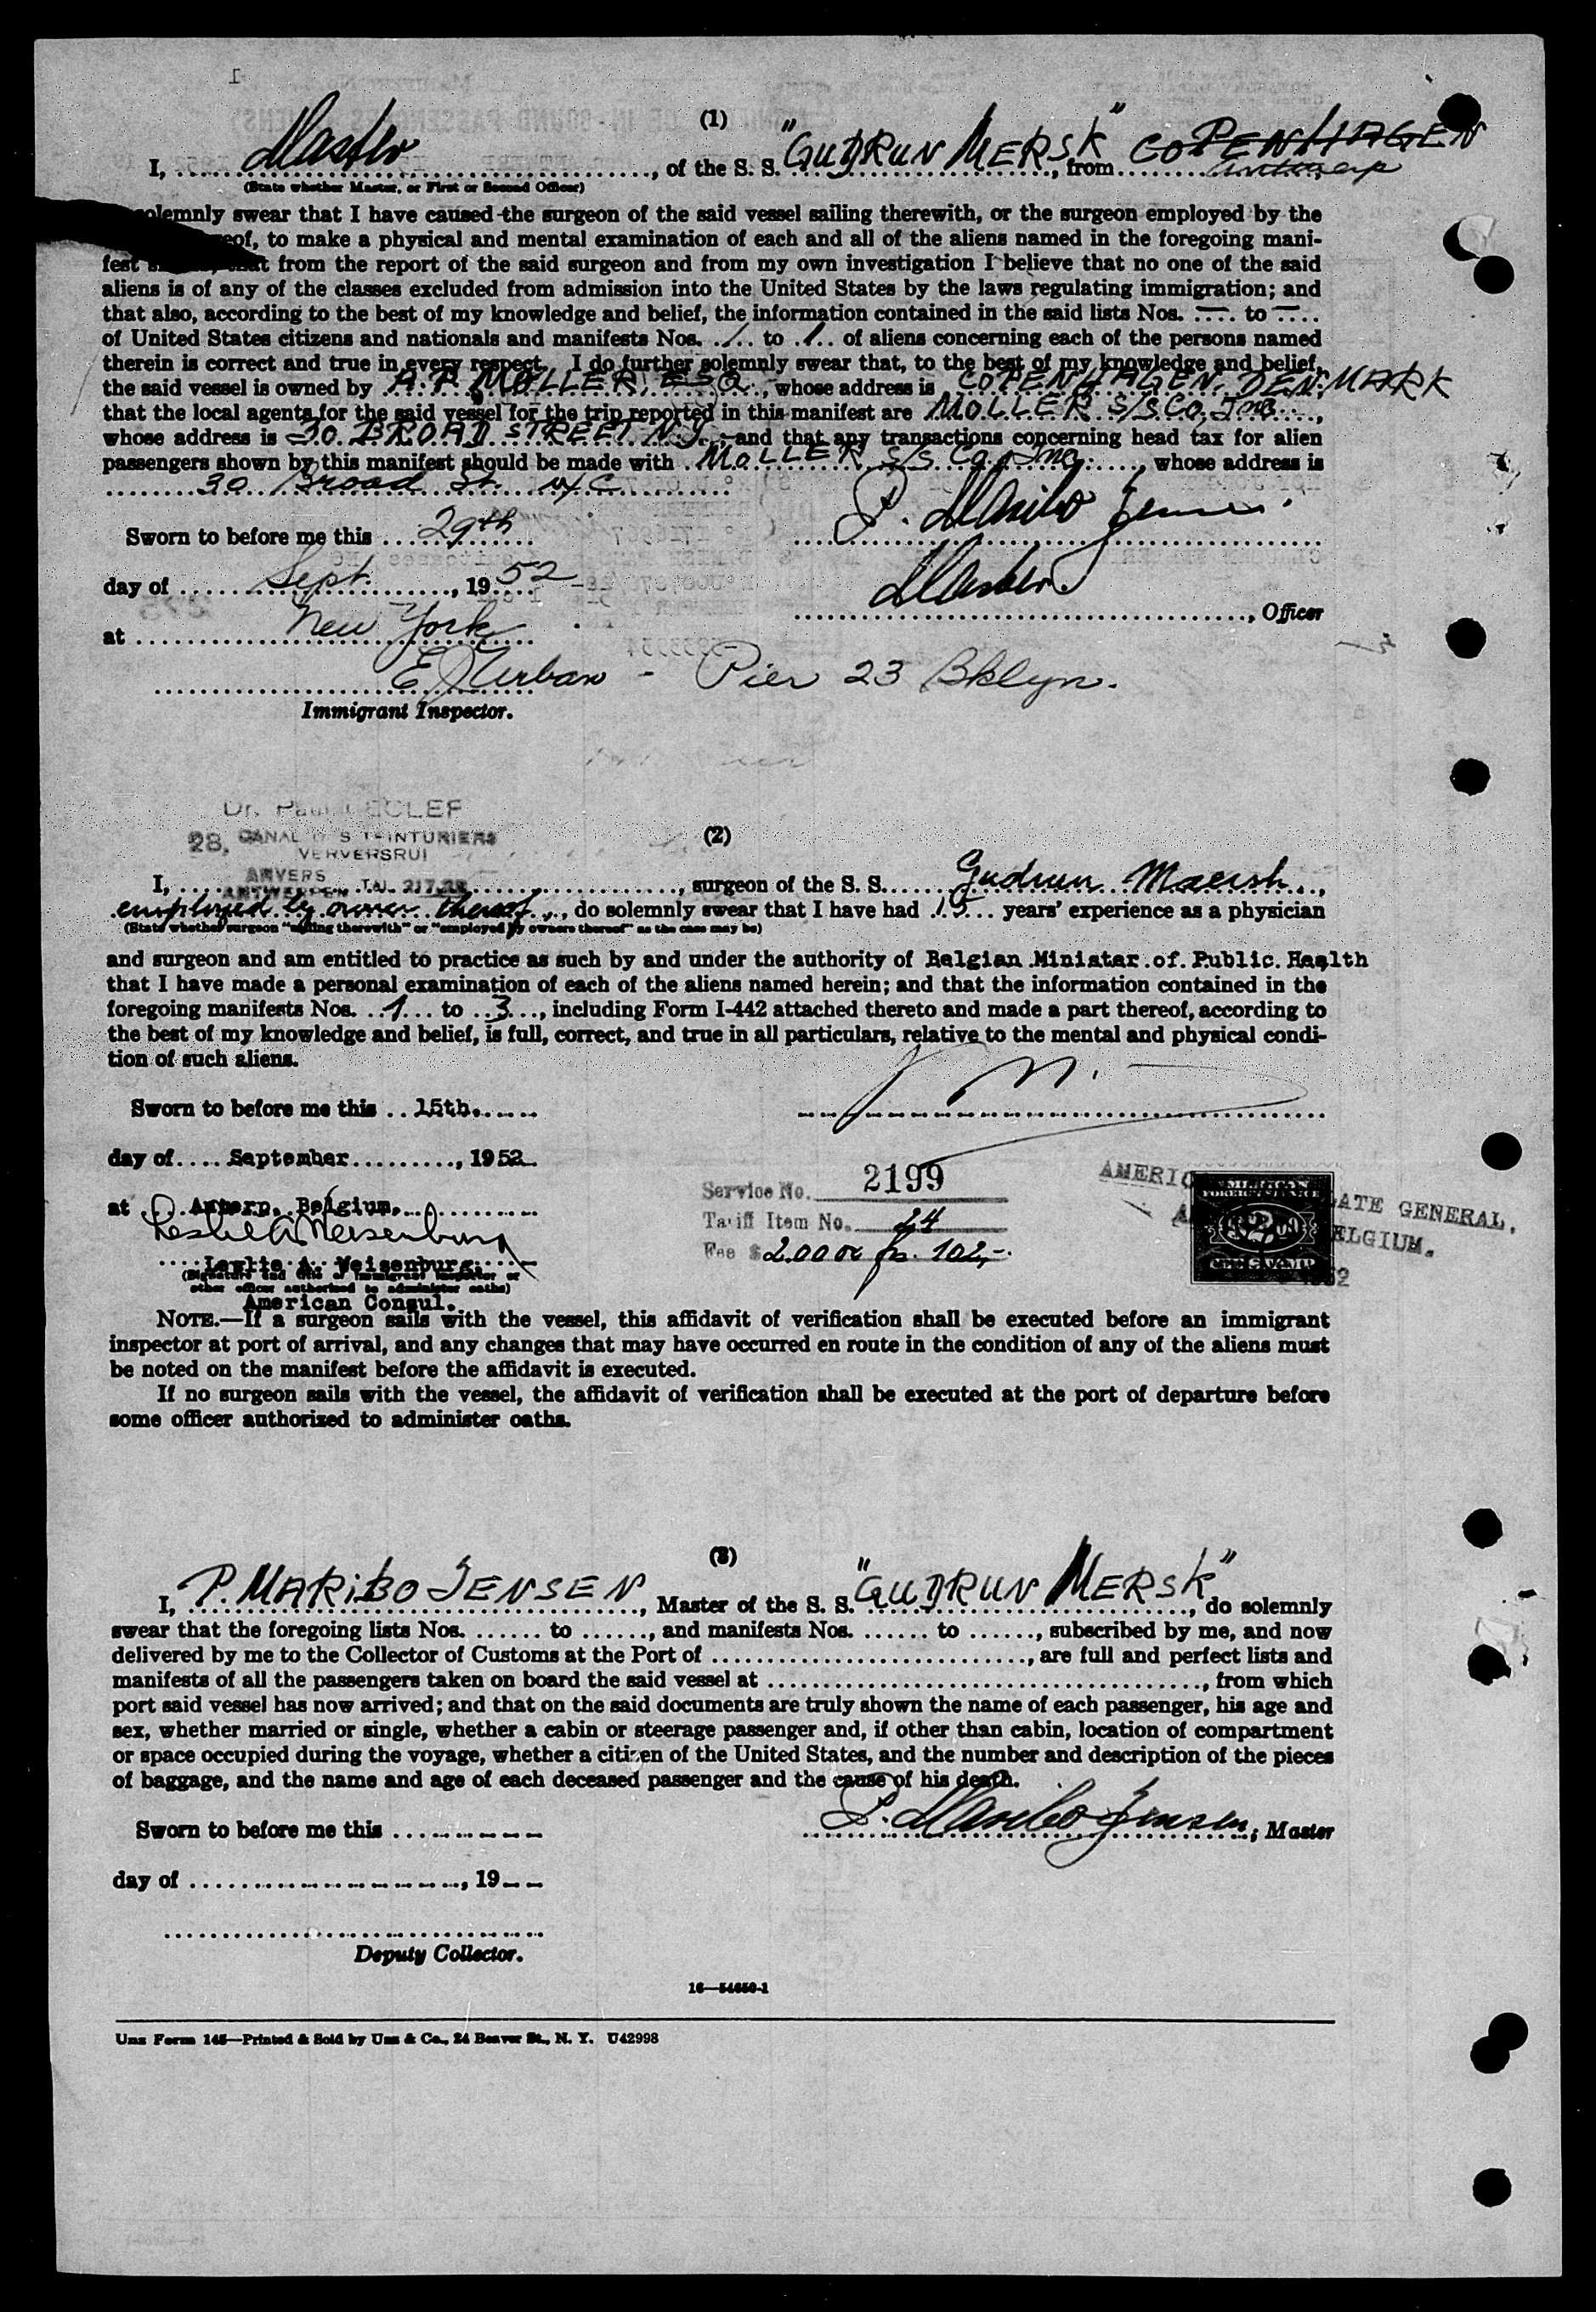 (1)
I, Master, of the S. S. "GUDRUN MERSK", from COPENHAGEN
Antwerp
(State whether Master, or First or Second Officer)
solemnly swear that I have caused the surgeon of the said vessel sailing therewith, or the surgeon employed by the
to make a physical and mental examination of each and all of the aliens named in the foregoing mani-
fest from the report of the said surgeon and from my own investigation I believe that no one of the said
aliens is of any of the classes excluded from admission into the United States by the laws regulating immigration; and
that also, according to the best of my knowledge and belief, the information contained in the said lists Nos. — to —
of United States citizens and nationals and manifests Nos. 1 to 1 of aliens concerning each of the persons named
therein is correct and true in every respect. I do further solemnly swear that, to the best of my knowledge and belief,
the said vessel is owned by A. P. MOLLER, ESQ., whose address is COPENHAGEN, DENMARK
that the local agents for the said vessel for the trip reported in this manifest are MOLLER S/S Co, Inc.,
whose address is 30 BROAD STREET N.Y., and that any transactions concerning head tax for alien
passengers shown by this manifest should be made with MOLLER S/S Co, Inc., whose address is
30 Broad St. N.Y.C
P. Maribo Jensen
Sworn to before me this 29th
day of Sept., 1952
Master, Officer
at New York
E J Urban - Pier 23 Bklyn.
Immigrant Inspector.
(2)
Dr. Paul
28, CANAL DES TEINTURIERS
VERVERSRUI
ANVERS
ANTWERPEN Tel. 217.28
I, , surgeon of the S. S. Gudrun Maersk,
employed by owner thereof, do solemnly swear that I have had 15 years' experience as a physician
(State whether surgeon "sailing therewith" or "employed by owners thereof" as the case may be)
and surgeon and am entitled to practice as such by and under the authority of Belgian Minister of Public Health
that I have made a personal examination of each of the aliens named herein; and that the information contained in the
foregoing manifests Nos. 1 to 3, including Form I-442 attached thereto and made a part thereof, according to
the best of my knowledge and belief, is full, correct, and true in all particulars, relative to the mental and physical condi-
tion of such aliens.
Sworn to before me this 15th
day of September, 1952
at Antwerp, Belgium.
Leslie A. Weisenburg
Leslie A. Weisenburg
(Signature and title of immigrant inspector or
other officer authorized to administer oaths)
American Consul.
Service No. 2199
Tariff Item No. 24
Fee $ 2.00 or fr. 102,-
AMERICAN CONSULATE GENERAL,
BELGIUM.
AMERICAN
FOREIGN SERVICE
$2.00
FEE STAMP
NOTE.—If a surgeon sails with the vessel, this affidavit of verification shall be executed before an immigrant
inspector at port of arrival, and any changes that may have occurred en route in the condition of any of the aliens must
be noted on the manifest before the affidavit is executed.
If no surgeon sails with the vessel, the affidavit of verification shall be executed at the port of departure before
some officer authorized to administer oaths.
(3)
I, P. MARIBO JENSEN, Master of the S. S. "GUDRUN MERSK", do solemnly
swear that the foregoing lists Nos. ...... to ......, and manifests Nos. ...... to ......, subscribed by me, and now
delivered by me to the Collector of Customs at the Port of ......, are full and perfect lists and
manifests of all the passengers taken on board the said vessel at ......, from which
port said vessel has now arrived; and that on the said documents are truly shown the name of each passenger, his age and
sex, whether married or single, whether a cabin or steerage passenger and, if other than cabin, location of compartment
or space occupied during the voyage, whether a citizen of the United States, and the number and description of the pieces
of baggage, and the name and age of each deceased passenger and the cause of his death.
P. Maribo Jensen, Master
Sworn to before me this ......
day of ......, 19
Deputy Collector.
16—54650-1
Unz Form 145—Printed & Sold by Unz & Co., 24 Beaver St., N. Y. U42998